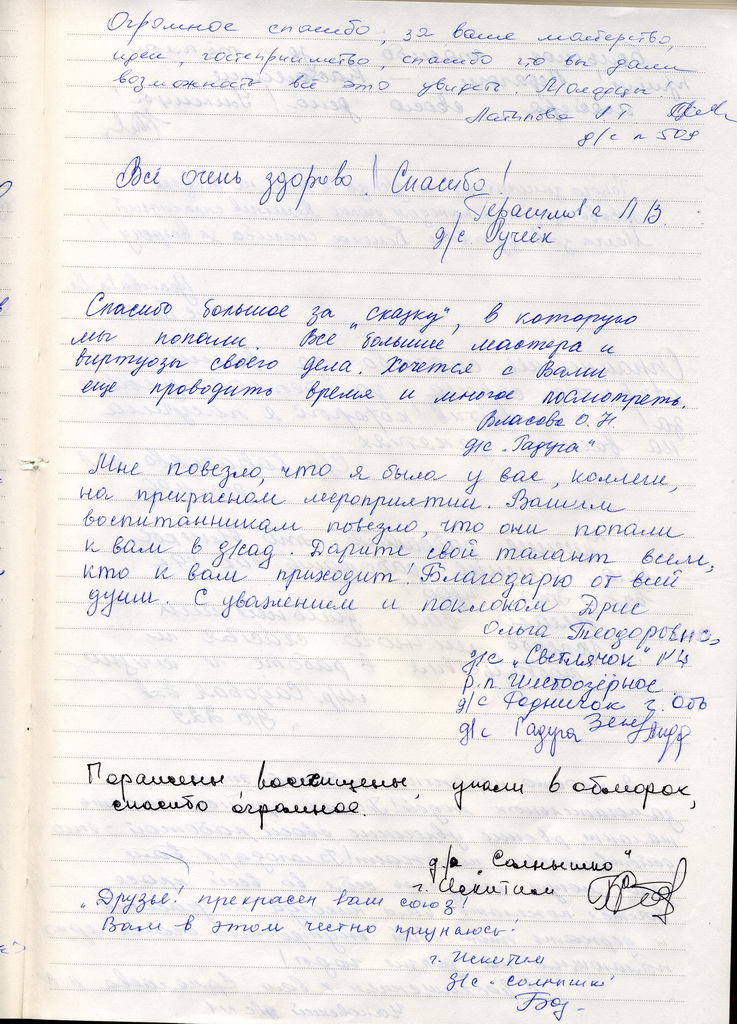 Огромное спасибо, за ваше мастерство,
идеи, гостеприимство, спасибо что вы дали
возможность всё это увидеть. Молодцы.
Латыпова Л Г
д/с n 509
Всё очень здорово! Спасибо!
Герасимова Л. В.
д/с Ручеёк
Спасибо большое за "сказку", в которую
мы попали. Все большие мастера и
виртуозы своего дела. Хочется с Вами
еще проводить время и многое посмотреть.
Власова О. Н
д/с "Радуга"
Мне повезло, что я была у вас, коллеги,
на прекрасном мероприятии. Вашим
воспитанникам повезло, что они попали
к вам в д/сад. Дарите свой талант всем,
кто к вам приходит! Благодарю от всей
души. С уважением и поклоном Дрис
Ольга Теодоровна,
д/с "Светлячок" №4
р.п. Чистоозёрное
д/с Родничок г. Обь
д/с Радуга
Поражены, восхищены, упали в обморок,
спасибо огромное.
д/с "Солнышко"
г. Искитим
"Друзья! прекрасен ваш союз!
Вам в этом честно признаюсь!
г. Искитим
д/с - солнышко